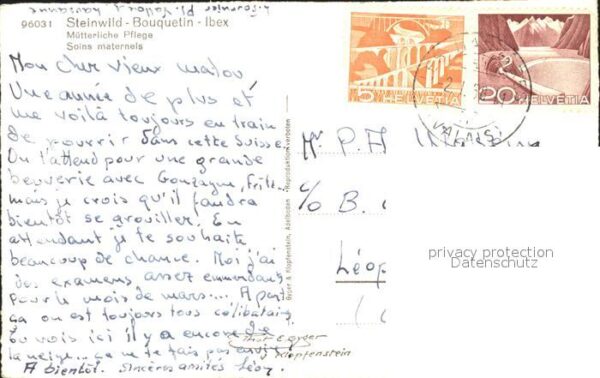 96031 Steinwild - Bouquetin - Ibex
Mütterliche Pflege
Soins maternels
Mon cher vieux matou
Une année de plus et
me voilà toujours en train
de pourrir dans cette Suisse.
On t'attend pour une grande
beuverie avec Gonzague, Fritz...
mais je crois qu'il faudra
bientôt se grouiller. En
attendant je te souhaite
beaucoup de chance. Moi j'ai
des examens assez emmerdants
pour le mois de mars.... A part
ça on est toujours tous célibataires
Tu vois ici il y a encore de
la neige... ça ne te fais pas envie
A bientôt. Sincères amitiés Léon.
Lausanne
Gyger & Klopfenstein, Adelboden
Reproduktion verboten
Phot E Gyger
Klopfenstein
5 HELVETIA
20 HELVETIA
VALAIS
Mr P.A
c/o B.
Léop
privacy protection
Datenschutz